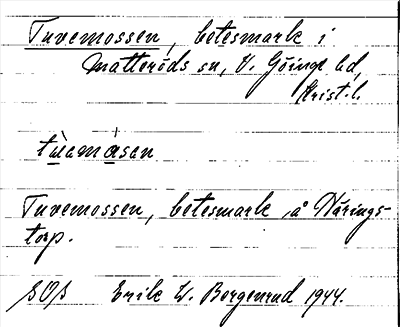 Tuvemossen, betesmark i
Matteröds sn, V. Göinge hd,
Krist. l.
tùvamåsan
Tuvemossen, betesmark å Härings-
torp.
SOJ Erik W. Borgenrud 1944.